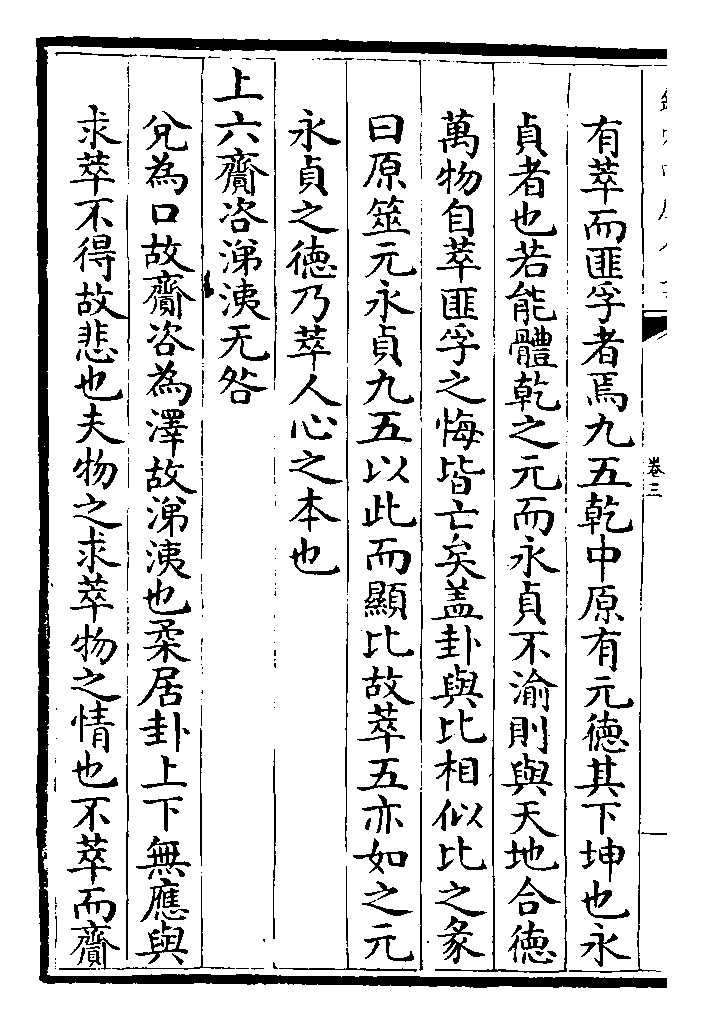 卷三
有萃而匪孚者焉九五乾中原有元德其下坤也永
貞者也若能體乾之元而永貞不渝則與天地合德
萬物自萃匪孚之悔皆亡矣盖卦與比相似比之彖
曰原筮元永貞九五以此而顯比故萃五亦如之元
永貞之德乃萃人心之本也
上六齎咨涕洟无咎
兊為口故齎咨為澤故涕洟也柔居卦上下無應與
求萃不得故悲也夫物之求萃物之情也不萃而齎